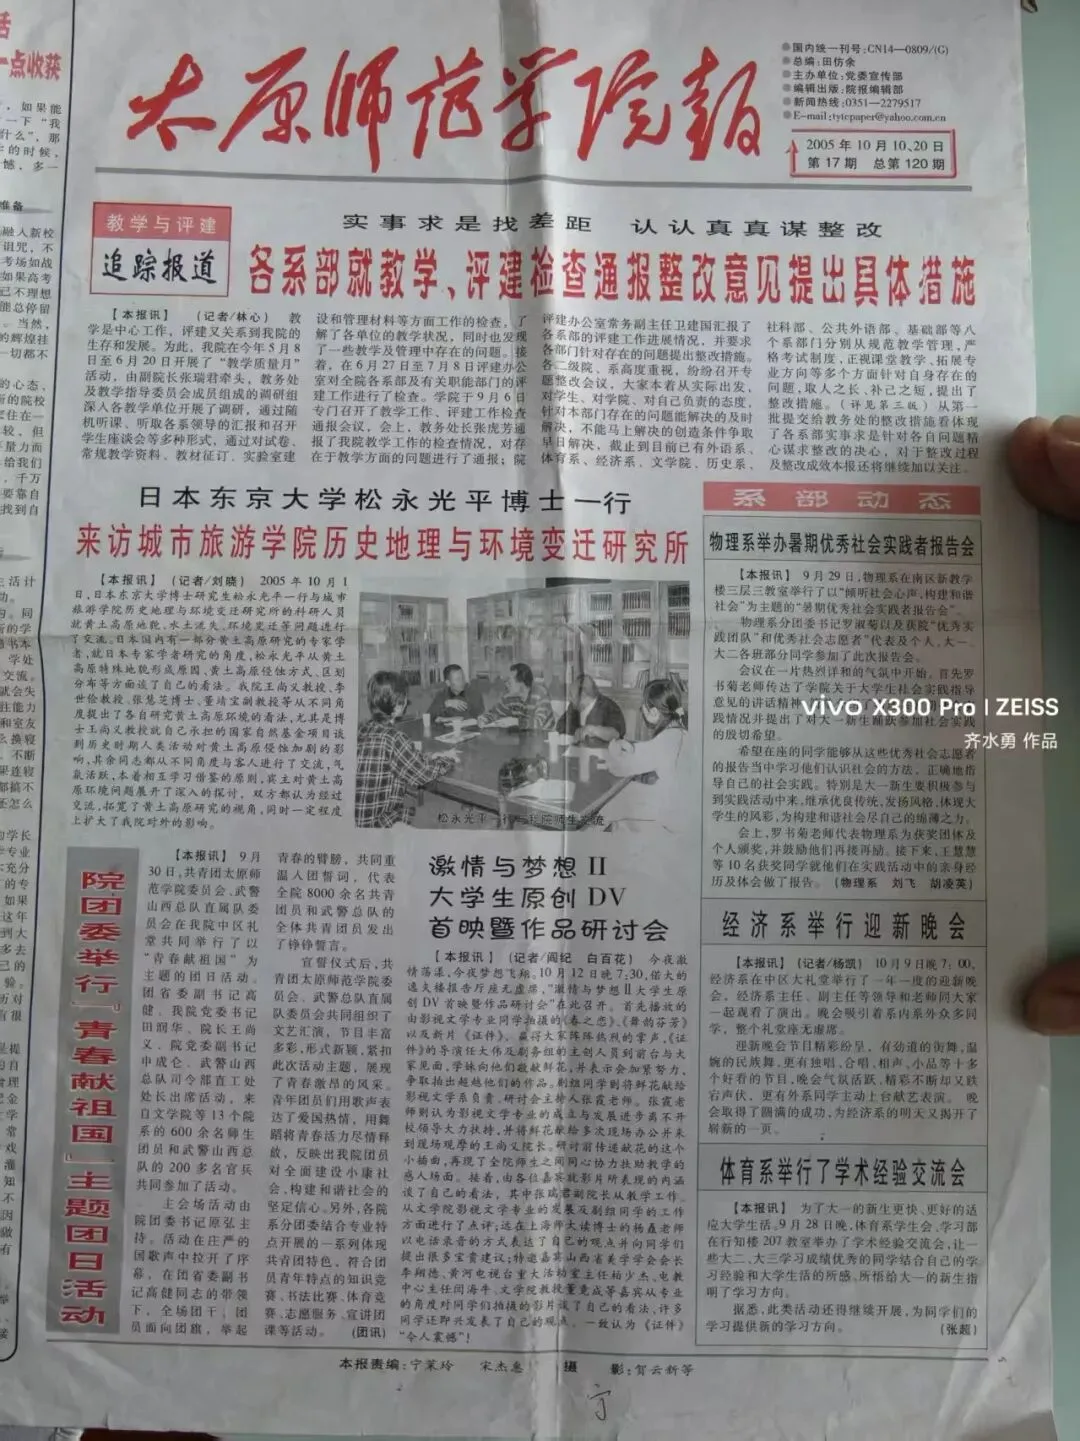 太原师范学院报
国内统一刊号:CN14—0809/(G)
总编:田仿余
主办单位:党委宣传部
编辑出版:院报编辑部
新闻热线:0351—2279517
E-mail:tytcpaper@yahoo.com.cn
2005年10月10、20日
第17期 总第120期
教学与评建
追踪报道
实事求是找差距 认认真真谋整改
各系部就教学、评建检查通报整改意见提出具体措施
【本报讯】 (记者/林心) 教
学是中心工作，评建又关系到我院的
生存和发展。为此，我院在今年5月8
日至6月20日开展了“教学质量月”
活动，由副院长张瑞君牵头，教务处
及教学指导委员会成员组成的调研组
深入各教学单位开展了调研，通过随
机听课、听取各系领导的汇报和召开
学生座谈会等多种形式，通过对试卷、
常规教学资料、教材征订、实验室建
设和管理材料等方面工作的检查，了
解了各单位的教学状况，同时也发现
了一些教学及管理中存在的问题。接
着，在6月27日至7月8日评建办公
室对全院各系部及有关职能部门的评
建工作进行了检查。学院于9月6日
专门召开了教学工作、评建工作检查
通报会议，会上，教务处长张虎芳通
报了我院教学工作的检查情况，对存
在于教学方面的问题进行了通报；院
评建办公室常务副主任卫建国汇报了
各系部的评建工作进展情况，并要求
各部门针对存在的问题提出整改措施。
各二级院、系高度重视，纷纷召开专
题整改会议，大家本着从实际出发，
对学生、对学院、对自己负责的态度，
针对本部门存在的问题能解决的及时
解决，不能马上解决的创造条件争取
早日解决，截止到目前已有外语系、
体育系、经济系、文学院、历史系、
社科部、公共外语部、基础部等八
个系部门分别从规范教学管理，严
格考试制度，正视课堂教学、拓展专
业方向等多个方面针对自身存在的
问题，取人之长、补己之短，提出了
整改措施。(详见第三版) 从第一
批提交给教务处的整改措施看体现
了各系部实事求是针对各自问题精
心谋求整改的决心，对于整改过程
及整改成效本报还将继续加以关注。
日本东京大学松永光平博士一行
来访城市旅游学院历史地理与环境变迁研究所
【本报讯】 (记者/刘晓) 2005年10月1
日，日本东京大学博士研究生松永光平一行与城市
旅游学院历史地理与环境变迁研究所的科研人员
就黄土高原地貌、水土流失、环境变迁等问题进行
了交流。日本国内有一部分黄土高原研究的专家学
者，就日本专家学者研究的角度，松永光平从黄土
高原特殊地貌形成原因、黄土高原侵蚀方式、区划
分布等方面谈了自己的看法。我院王尚义教授、李
世佺教授、张慧芝博士、董靖宝副教授等从不同角
度提出了各自研究黄土高原环境的看法，尤其是博
士王尚义教授就自己承担的国家自然基金项目谈
到历史时期人类活动对黄土高原侵蚀加剧的影
响，其余同志都从不同角度与客人进行了交流，气
氛活跃，本着相互学习借鉴的原则，宾主对黄土高
原环境问题展开了深入的探讨，双方都认为经过
交流，拓宽了黄土高原研究的视角，同时一定程度
上扩大了我院对外的影响。
松永光平一行与我院师生交流
院团委举行“青春献祖国”主题团日活动
【本报讯】9月
30日，共青团太原师
范学院委员会、武警
山西总队直属队委
员会在我院中区礼
堂共同举行了以
“青春献祖国”为
主题的团日活动。
团省委副书记高
健、我院党委书记
田纲华、院长王尚
义、院党委副书记
申成仑、武警山西
总队司令部直工处
处长出席活动，来
自文学院等13个院
系的600余名师生
团员和武警山西总
队的200多名官兵
共同参加了活动。
主会场活动由
院团委书记原弘主
持。活动在庄严的
国歌声中拉开了序
幕，在团省委副书
记高健同志的带领
下，全场团干、团
员面向团旗，举起
青春的臂膀，共同重
温入团誓词，代表
全院8000余名共青
团员和武警总队的
全体共青团员发出
了铮铮誓言。
宣誓仪式后，共
青团太原师范学院委
员会、武警总队直属
队委员会共同组织了
文艺汇演，节目丰富
多彩，形式新颖，紧扣
此次活动主题，展现
了青春激昂的风采。
青年团员们用歌声表
达了爱国热情，用舞
蹈将青春活力尽情释
放，反映出我院团员
对全面建设小康社
会，构建和谐社会的
坚定信心。另外，各院
系分团委结合专业特
点开展的一系列体现
共青团特色，符合团
员青年特点的知识竞
赛、书法比赛、体育竞
赛、志愿服务、宣讲团
课等活动。 (团讯)
激情与梦想 II
大学生原创 DV
首映暨作品研讨会
【本报讯】 (记者/阎纪 白百花) 今夜激
情荡漾，今夜梦想飞翔。10月12日晚7:30，偌大的
逸夫楼报告厅座无虚席，“激情与梦想II大学生原
创DV首映暨作品研讨会”在此召开。首先播放的
由影视文学专业同学拍摄的《春之恋》、《舞韵芬芳》
以及新片《证件》，赢得大家阵阵热烈的掌声，《证
件》的导演任大伟及剧务组的主创人员到前台与大
家见面，学妹向他们敬献鲜花，并表示会加紧努力，
争取拍出超越他们的作品。剧组同学则将鲜花献给
影视文学系负责、研讨会主持人张霞老师。张霞老
师则认为影视文学专业的成立与发展进步离不开
校领导大力扶持，并将鲜花献给多次现场办公并来
到现场观摩的王尚义院长。研讨前传递献花的这个
小插曲，再现了全院师生之间同心协力扶助教学的
感人场面。接着，由各位嘉宾就影片所表现的内涵
谈了自己的看法，其中张瑞君副院长从教学工作、
从文学院影视文学专业的发展及剧组同学的工作
方面进行了点评；远在上海师大读博士的杨矗老师
以电话录音的方式表达了自己的观点并向同学们
提出很多宝贵建议；特邀嘉宾山西省美学学会会长
李翔德、黄河电视台重大活动室主任杨少杰、电教
中心主任闫海平、文学院教授董竟成等嘉宾从专业
的角度对同学们拍摄的影片谈了自己的看法，许多
同学还即兴发表了自己的观点。一致认为《证件》
“令人震憾”！
系部动态
物理系举办暑期优秀社会实践者报告会
【本报讯】 9月29日，物理系在南区新教学
楼三层三教室举行了以“倾听社会心声，构建和谐
社会”为主题的“暑期优秀社会实践者报告会”。
物理系分团委书记罗淑菊以及获院“优秀实
践团队”和优秀社会志愿者”代表及个人，大一、
大二各班部分同学参加了此次报告会。
会议在一片热烈祥和的气氛中开始。首先罗
书菊老师传达了学院关于大学生社会实践指导
意见的讲话精神
践情况并提出了对大一新生踊跃参加社会实践
的殷切希望。
希望在座的同学能够从这些优秀社会志愿者
的报告当中学习他们认识社会的方法，正确地指
导自己的社会实践。特别是大一新生要积极参与
到实践活动中来，继承优良传统，发扬风格，体现大
学生的风彩，为构建和谐社会尽自己的绵薄之力。
会上，罗书菊老师代表物理系为获奖团体及
个人颁奖，并鼓励他们再接再励。接下来，王慧慧
等10名获奖同学就他们在实践活动中的亲身经
历及体会做了报告。 (物理系 刘飞 胡凌英)
经济系举行迎新晚会
【本报讯】 (记者/杨凯) 10月9日晚7：00，
经济系在中区大礼堂举行了一年一度的迎新晚
会。经济系主任、副主任等领导和老师同大家
一起观看了演出。晚会吸引着系内系外众多同
学，整个礼堂座无虚席。
迎新晚会节目精彩纷呈，有劲道的街舞，温
婉的民族舞，更有独唱、合唱、相声、小品等十多
个好看的节目，晚会气氛活跃，精彩不断却又跌
宕声伏，更有外系同学主动上台献艺表演。 晚
会取得了圆满的成功，为经济系的明天又揭开了
崭新的一页。
体育系举行了学术经验交流会
【本报讯】 为了大一的新生更快、更好的适
应大学生活。9月28日晚，体育系学生会、学习部
在行知楼207教室举办了学术经验交流会，让一
些大二、大三学习成绩优秀的同学结合自己的学
习经验和大学生活的所感、所悟给大一的新生指
明了学习方向。
据悉，此类活动还得继续开展，为同学们的
学习提供新的学习方向。 (张超)
本报责编:宁茉玲 宋杰惠 摄 影:贺云新等
vivo X300 Pro | ZEISS
齐水勇 作品